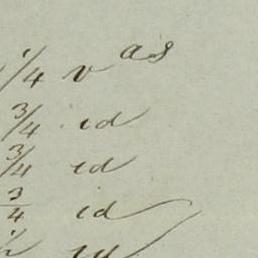 1/4 v as
3/4 id
3/4 id
3/4 id
1/2 id